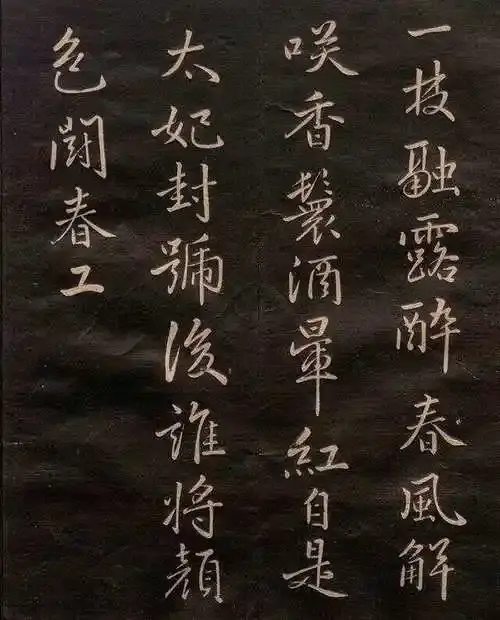 一枝融露醉春風解
咲香鬟酒暈紅自是
太妃封號後誰將顏
色鬭春工